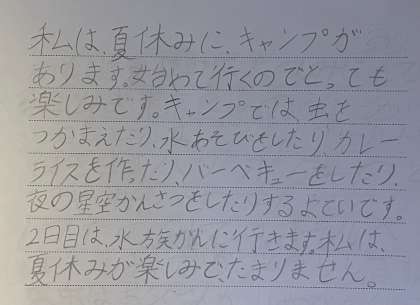 私は、夏休みに、キャンプが
あります。始めて行くのでとっても
楽しみです。キャンプでは、虫を
つかまえたり、水あそびをしたり、カレー
ライスを作ったり、バーベキューをしたり、
夜の星空かんさつをしたりするよていです。
2日目は、水族かんに行きます。私は、
夏休みが楽しみで、たまりません。